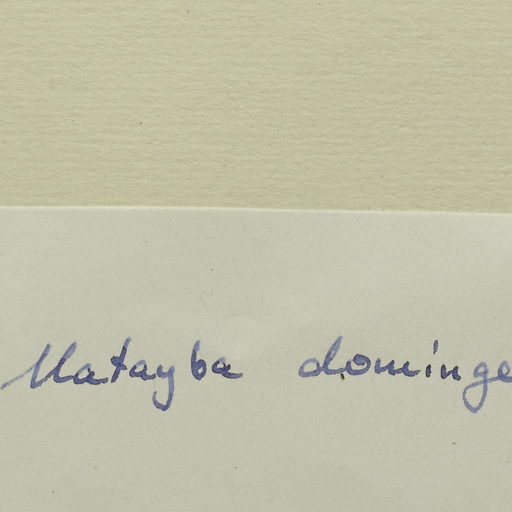 Matayba dominge